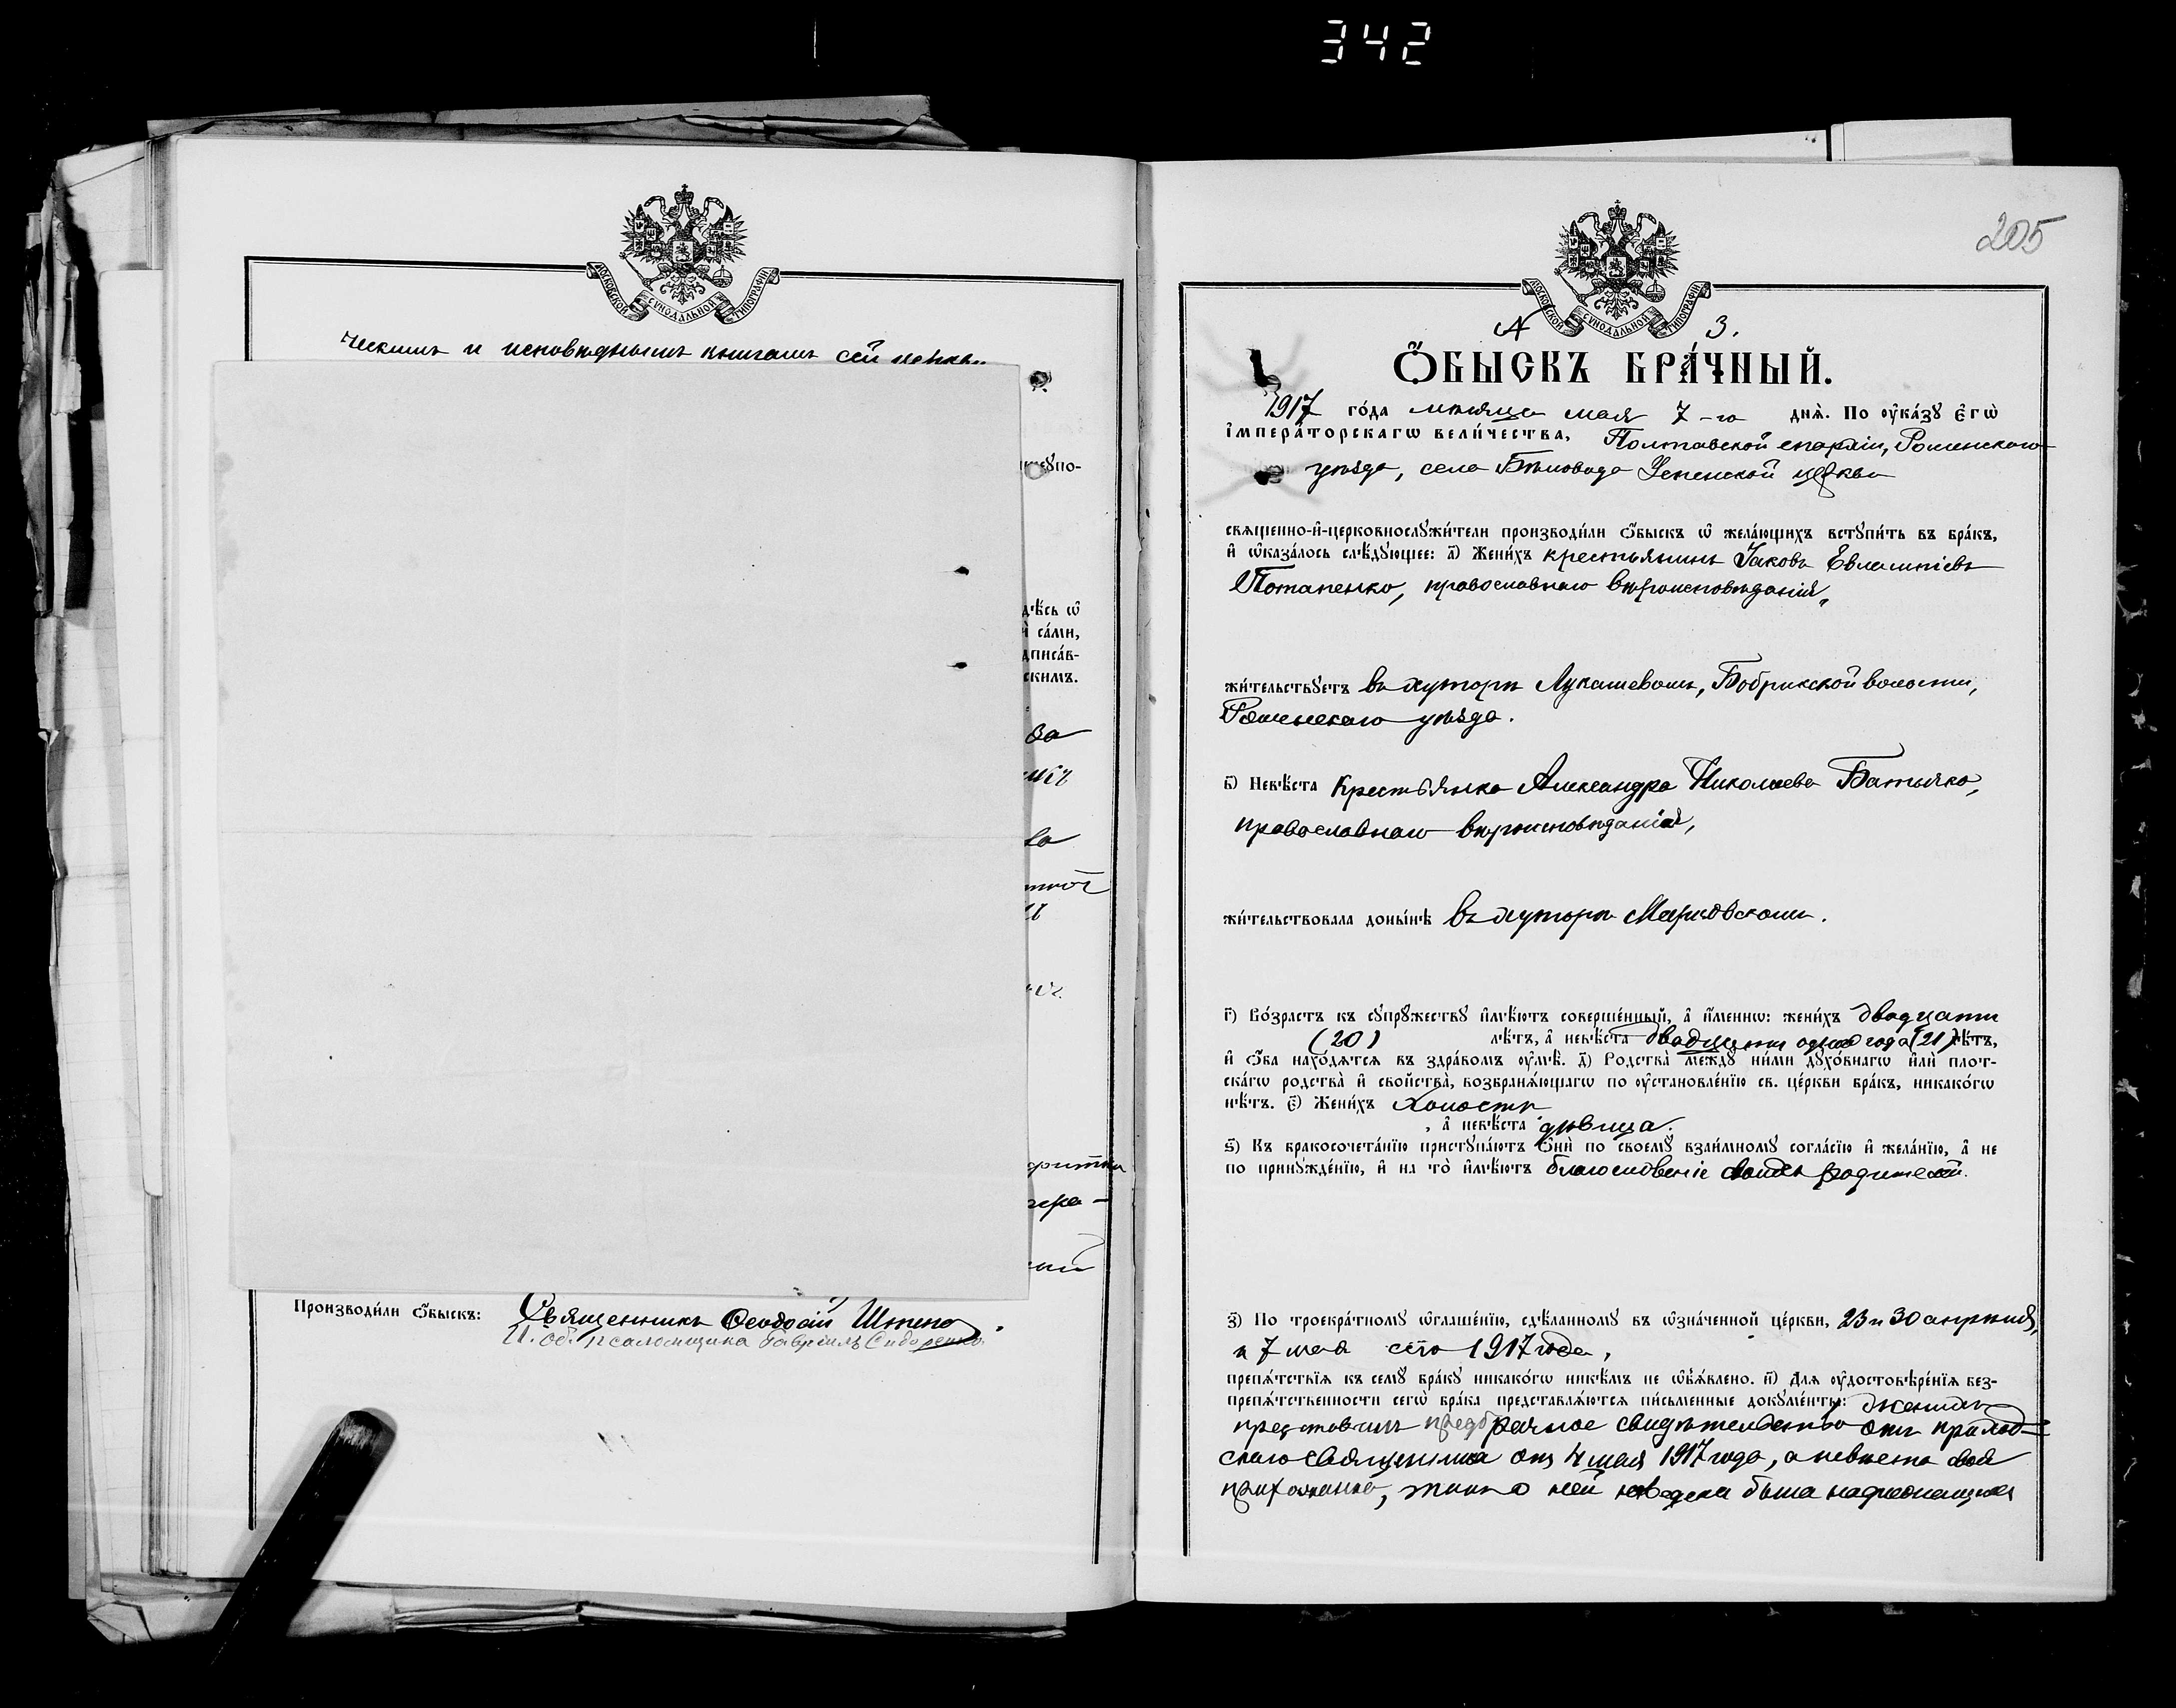 342
МОСКОВСКОЙ СУНОДАЛЬНОЙ ТИПОГРАФІИ
ческимъ и исповѣднымъ книгамъ сей церкви
дѣсь ѡ҆
са́ми,
дписа́в-
скимъ.
Производи́ли ѻ҆́быскъ: Священникъ Ѳеодосій
И. об. псаломщика Гавріилъ Сидоренко.
205
МОСКОВСКОЙ СУНОДАЛЬНОЙ ТИПОГРАФІИ
№ 3.
Ѻ҆́БЫСКЪ БРА́ЧНЫЙ.
1917 го́да мѣсяца мая 7-го днѧ̀. По ᲂу҆ка́зꙋ є҆гѡ̀
і҆мпера́торскагѡ вели́чества, Полтавской епархіи, Роменскаго
уѣзда, села Бѣловода Успенской церкви
свѧще́нно-и҆-церковнослꙋжи́тели производи́ли ѻ҆́быскъ ѡ҆ жела́ющихъ встꙋпи́ть въ бра́къ,
и҆ ѡ҆каза́лось слѣ́дꙋющее: а҃) Жени́хъ крестьянинъ Іаковъ Евлампіевъ
Потапенко, православнаго вѣроисповѣданія,
жи́тельствꙋетъ въ хуторѣ Лукашевомъ, Бобрикской волости,
Роменскаго уѣзда.
в҃) Невѣ́ста крестьянка Александра Николаева Батычко,
православнаго вѣроисповѣданія,
жи́тельствовала доны́нѣ въ хуторѣ Марковскомъ.
г҃) Во́зрастъ къ сꙋпрꙋ́жествꙋ и҆мѣ́ютъ соверше́нный, а҆ и҆́менно: жени́хъ двадцати
(20) лѣ́тъ, а҆ невѣ́ста двадцати одного года (21) лѣ́тъ,
и҆ ѻ҆́ба нахо́дѧтсѧ въ здра́вомъ ᲂу҆мѣ̀. д҃) Родства̀ междꙋ̀ ни́ми дꙋхо́внагѡ и҆лѝ плот-
ска́гѡ родства̀ и҆ сво́йства̀, возбранѧ́ющагѡ по ᲂу҆становле́нїю св. це́ркви бра́къ, никако́гѡ
нѣ́тъ. є҃) Жени́хъ холостъ
, а҆ невѣ́ста дѣвица.
ѕ҃) Къ бракосочета́нїю пристꙋпа́ютъ ѻ҆нѝ по своемꙋ̀ взаи́мномꙋ согла́сїю и҆ жела́нїю, а҆ не
по принꙋжде́нїю, и҆ на то̀ и҆мѣ́ютъ благословеніе своихъ родителей.
з҃) По троекра́тномꙋ ѡ҆глаше́нїю, сдѣ́ланномꙋ въ ѡ҆зна́ченной це́ркви, 23 и 30 апрѣля,
и 7 мая сего 1917 года,
препѧ́тствїѧ къ семꙋ̀ бра́кꙋ никако́гѡ никѣ́мъ не ѡ҆б̾ѧ́влено. и҃) Длѧ ᲂу҆достовѣре́нїѧ без-
препѧ́тственности сегѡ̀ бра́ка представлѧ́ютсѧ пи́сьменные докꙋме́нты: Женихъ
представилъ предбрачное свидѣтельство отъ приход-
скаго священника отъ 4 мая 1917 года, а невѣста своя
прихожанка, и о ней была